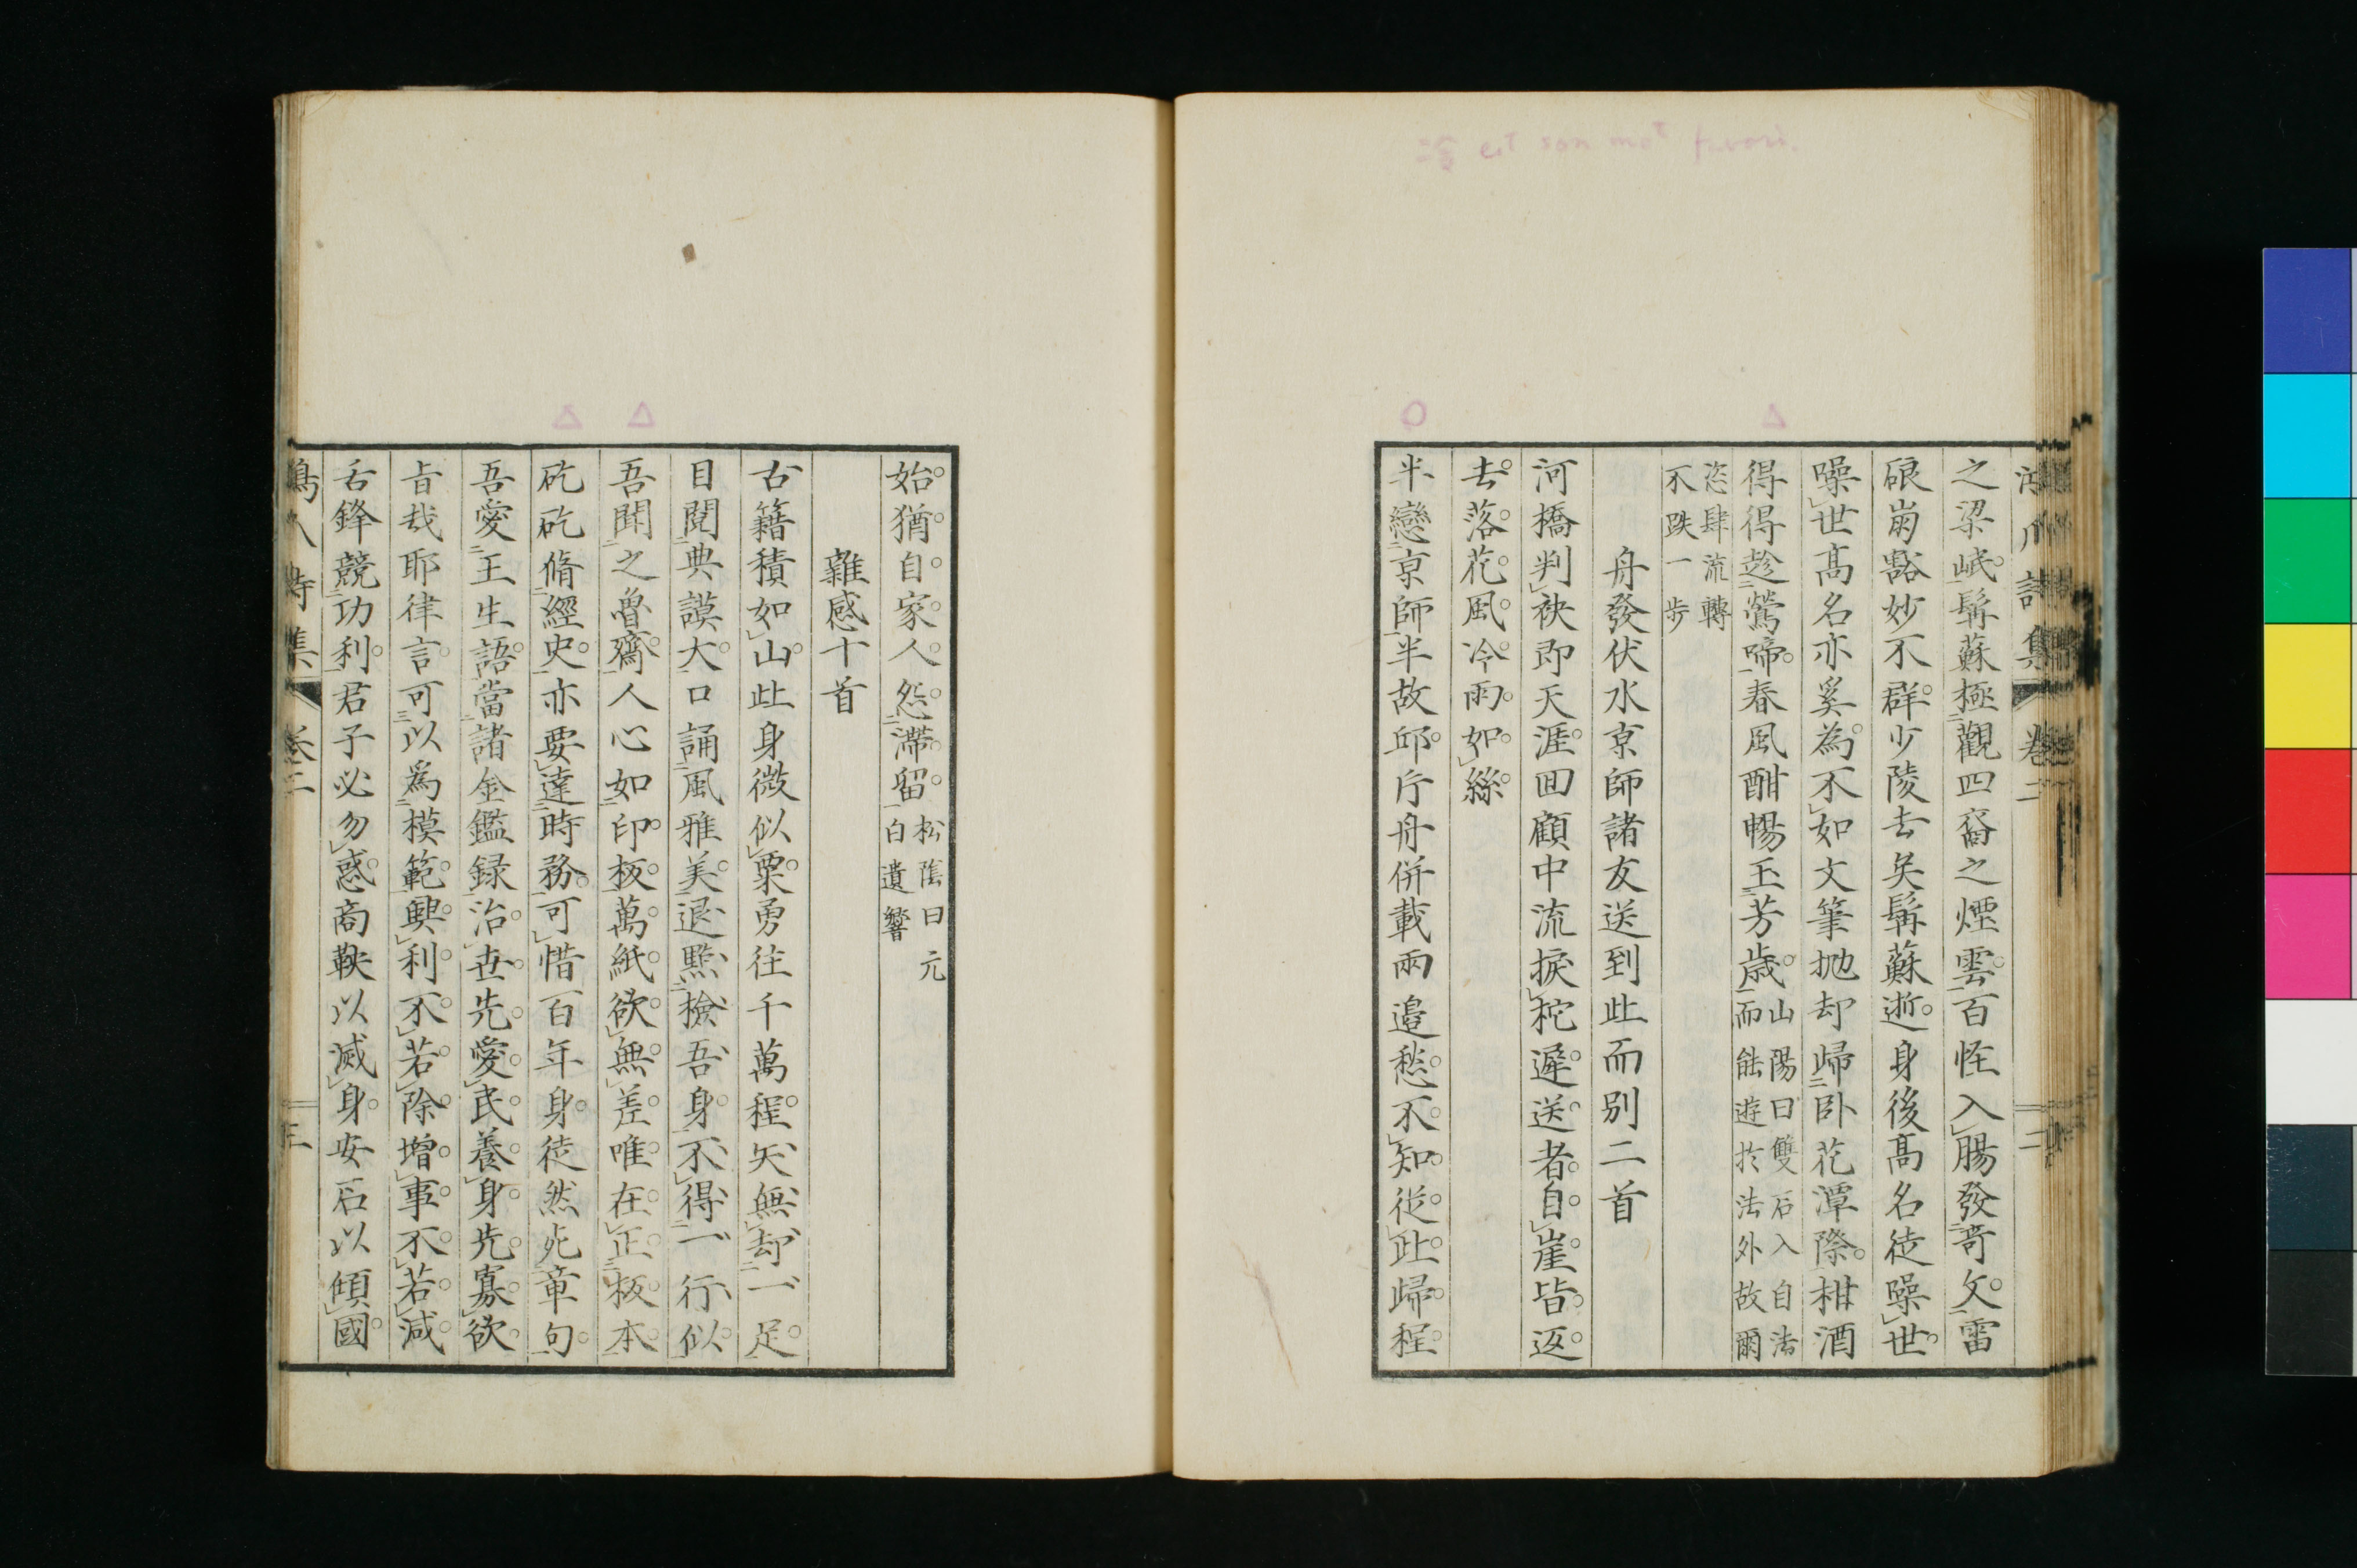 est son mot favori.
之梁岷髯蘇極觀四裔之煙雲百怪入腸發奇文雷
硠崩豁妙不群少陵去矣髯蘇逝身後高名徒噪世
噪世高名亦奚為不如文筆抛却歸臥花潭際柑酒
得得趁鶯啼春風酣暢玉芳歲山陽曰雙石入自法
而能遊於法外故爾
恣肆流轉
不跌一步
舟發伏水京師諸友送到此而別二首
河橋判袂即天涯回顧中流捩柁遲送者自崖皆返
去落花風冷雨如絲
半戀京師半故邱片舟併載兩邉愁不知從此歸程
詩集 卷二
二
始猶自家人怨滯留松陰曰元
白遺響
雜感十首
古籍積如山此身微似粟勇往千萬程矢無却一足
目閱典謨大口誦風雅美退黙撿吾身不得一行似
吾聞之魯齋人心如印板萬紙欲無差唯在正板本
矻矻脩經史亦要達時務可惜百年身徒然死章句
吾愛王生語當諸金鑑録治世先愛民養身先寡欲
旨哉耶律言可以爲模範興利不若除増事不若減
舌鋒競功利君子必勿惑商鞅以滅身安石以傾國
詩集 卷二
三